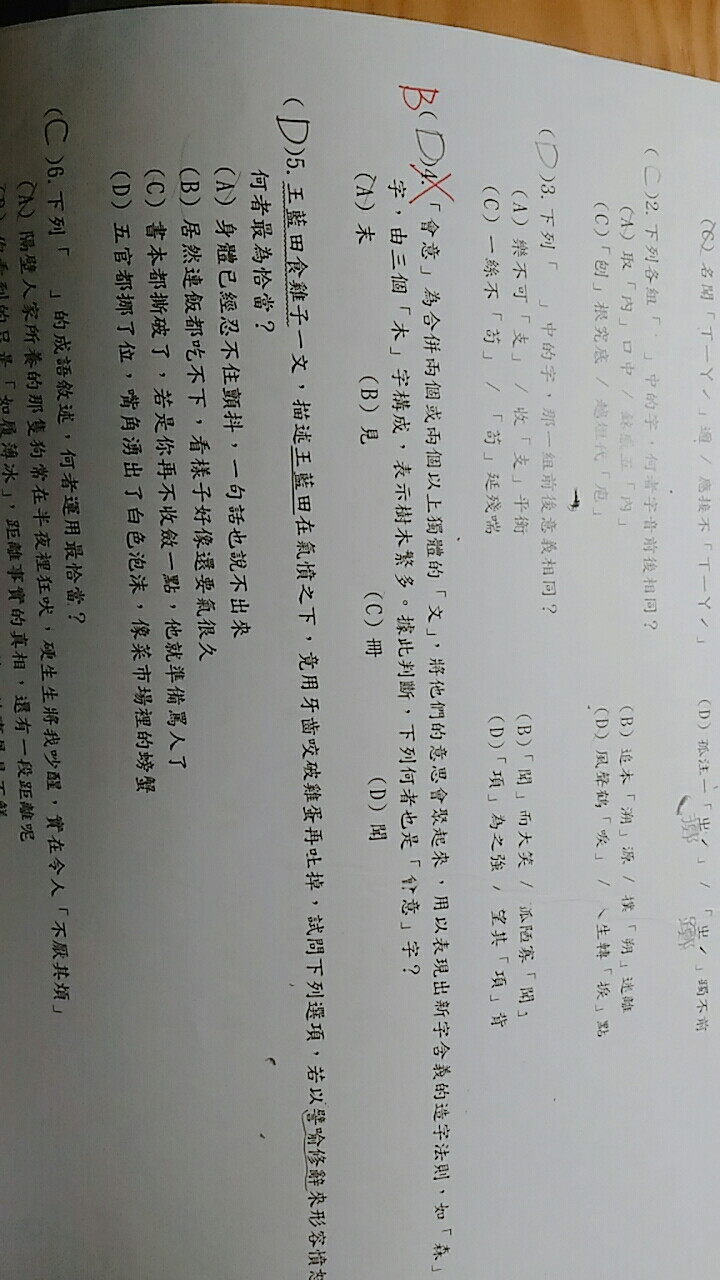 名聞「ㄒㄧㄚˊ」邇/應接不「ㄒㄧㄚˊ」 (D)孤注一「ㄓˊ」/「ㄓˊ」躅不前
(C)2.下列各組「 」中的字,何者字音前後相同?
(A)取「內」口中/ (B)追本「溯」源/撲「朔」迷離
(C)「刨」根究底/越俎代「庖」 (D)風聲鶴「唳」/人生轉「捩」點
(D)3.下列「 」中的字,那一組前後意義相同?
(A)樂不可「支」/收「支」平衡 (B)「聞」而大笑/孤陋寡「聞」
(C)一絲不「苟」/「苟」延殘喘 (D)「項」為之強/望其「項」背
B(D)4.「會意」為合併兩個或兩個以上獨體的「文」,將他們的意思會聚起來,用以表現出新字含義的造字法則,如「森」
字,由三個「木」字構成,表示樹木繁多。據此判斷,下列何者也是「會意」字?
(A)末 (B)見 (C)冊 (D)聞
(D)5.王藍田食雞子一文,描述王藍田在氣憤之下,竟用牙齒咬破雞蛋再吐掉,試問下列選項,若以譬喻修辭來形容憤怒
何者最為恰當?
(A)身體已經忍不住顫抖,一句話也說不出來
(B)居然連飯都吃不下,看樣子好像還要氣很久
(C)書本都撕破了,若是你再不收斂一點,他就準備罵人了
(D)五官都挪了位,嘴角湧出了白色泡沫,像菜市場裡的螃蟹
(C)6.下列「 」的成語敘述,何者運用最恰當?
(A)隔壁人家所養的那隻狗常在半夜裡狂吠,硬生生將我吵醒,實在令人「不厭其煩」
(B)你看到的只是「如履薄冰」,距離事實的真相,還有一段距離呢